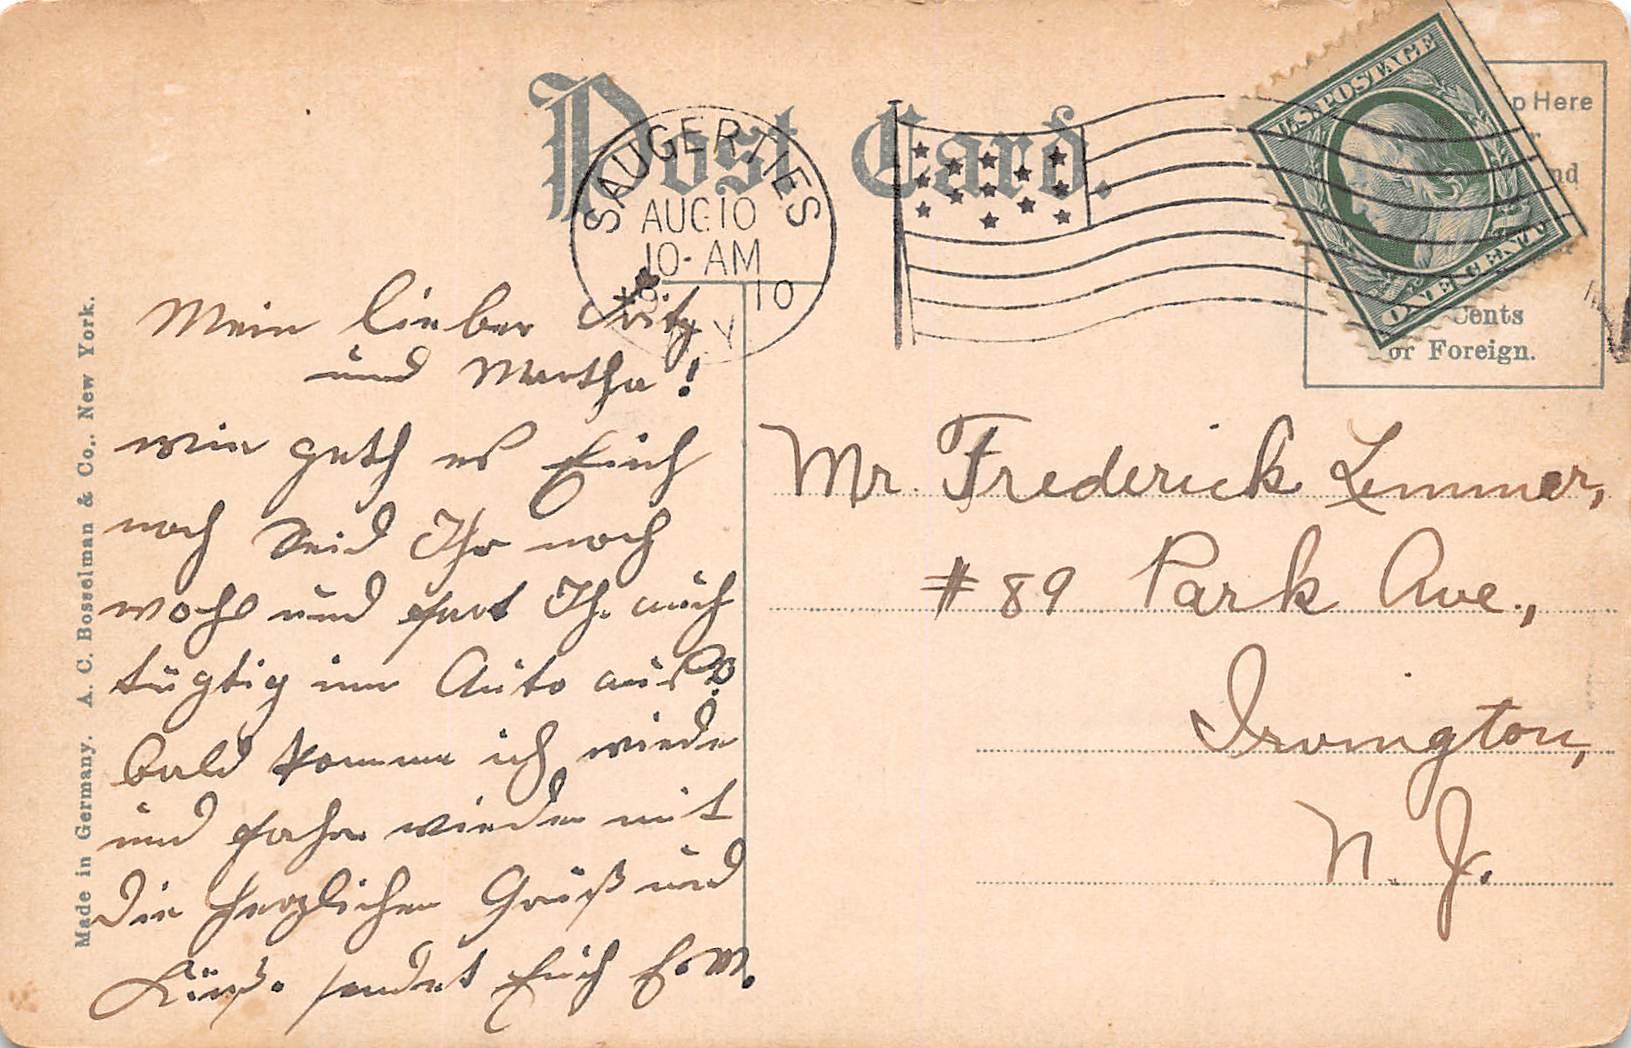 Post Card.
SAUGERTIES
AUG 10
10-AM
10
U.S. POSTAGE
ONE CENT
p Here
nd
Cents
or Foreign.
Made in Germany. A. C. Bosselman & Co., New York.
Mein lieber Fritz
und Martha!
wie geth es Euch
noch seid Ihr noch
wohl und fart Ih. auch
tügtig im Auto aus?
bald komme ich wieder
und fahre wieder mit
die herzlichen Grüß und
Küße sendet Euch
Mr. Frederick Lemmer,
#89 Park Ave.,
Irvington,
N. J.